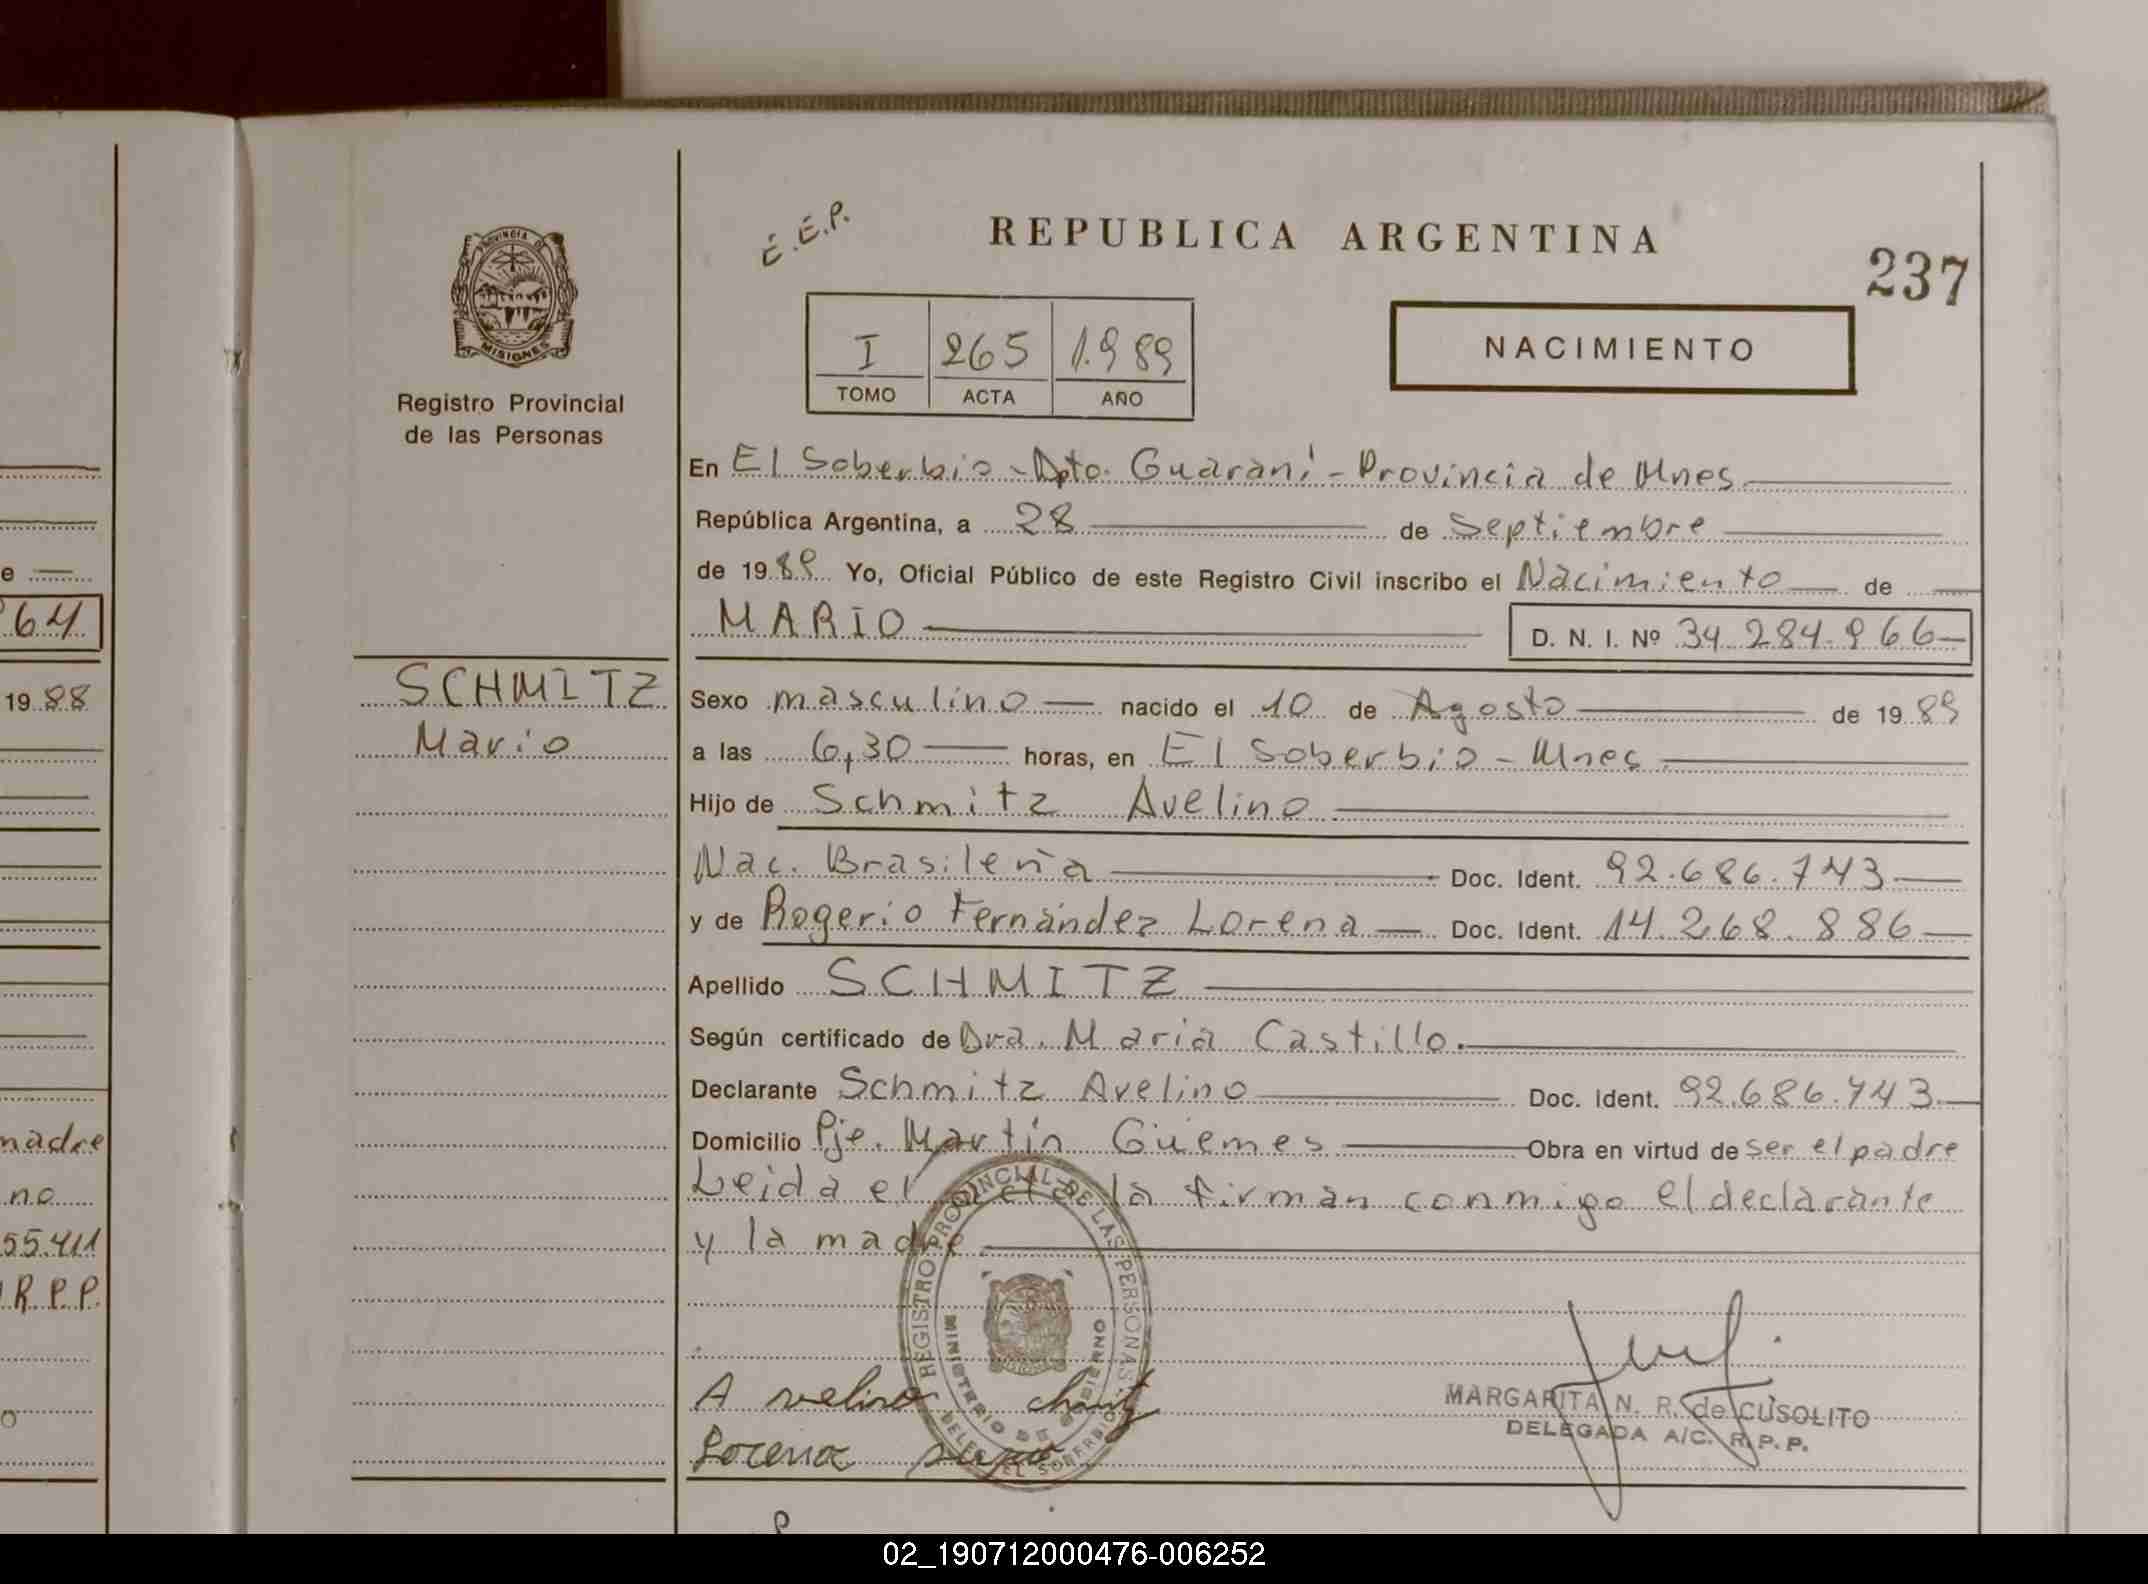 e
64
19 88
madre
no
55.411
R.P.P.
PROVINCIA DE
MISIONES
Registro Provincial
de las Personas
SCHMITZ
Mario
E.E.P.
REPUBLICA ARGENTINA
237
I 265 1.989
TOMO ACTA AÑO
NACIMIENTO
En El Soberbio - Dpto. Guaraní - Provincia de Mnes
República Argentina, a 28 de Septiembre
de 1989 Yo, Oficial Público de este Registro Civil inscribo el Nacimiento de
MARIO D. N. I. Nº 34.284.966
Sexo masculino nacido el 10 de Agosto de 1989
a las 6,30 horas, en El Soberbio - Mnes.
Hijo de Schmitz Avelino
Nac. Brasileña Doc. Ident. 92.686.743
y de Rogerio Fernández Lorena Doc. Ident. 14.268.886
Apellido SCHMITZ
Según certificado de Dra. Maria Castillo.
Declarante Schmitz Avelino Doc. Ident. 92.686.743
Domicilio Pje. Martín Güemes Obra en virtud de ser el padre
Leida el acta la firman conmigo el declarante
y la madre
REGISTRO PROVINCIAL DE LAS PERSONAS
MINISTERIO DE GOBIERNO
EL SOBERBIO
Avelino
Lorena
MARGARITA N. R. de CUSOLITO
DELEGADA A/C. R.P.P.
02_190712000476-006252